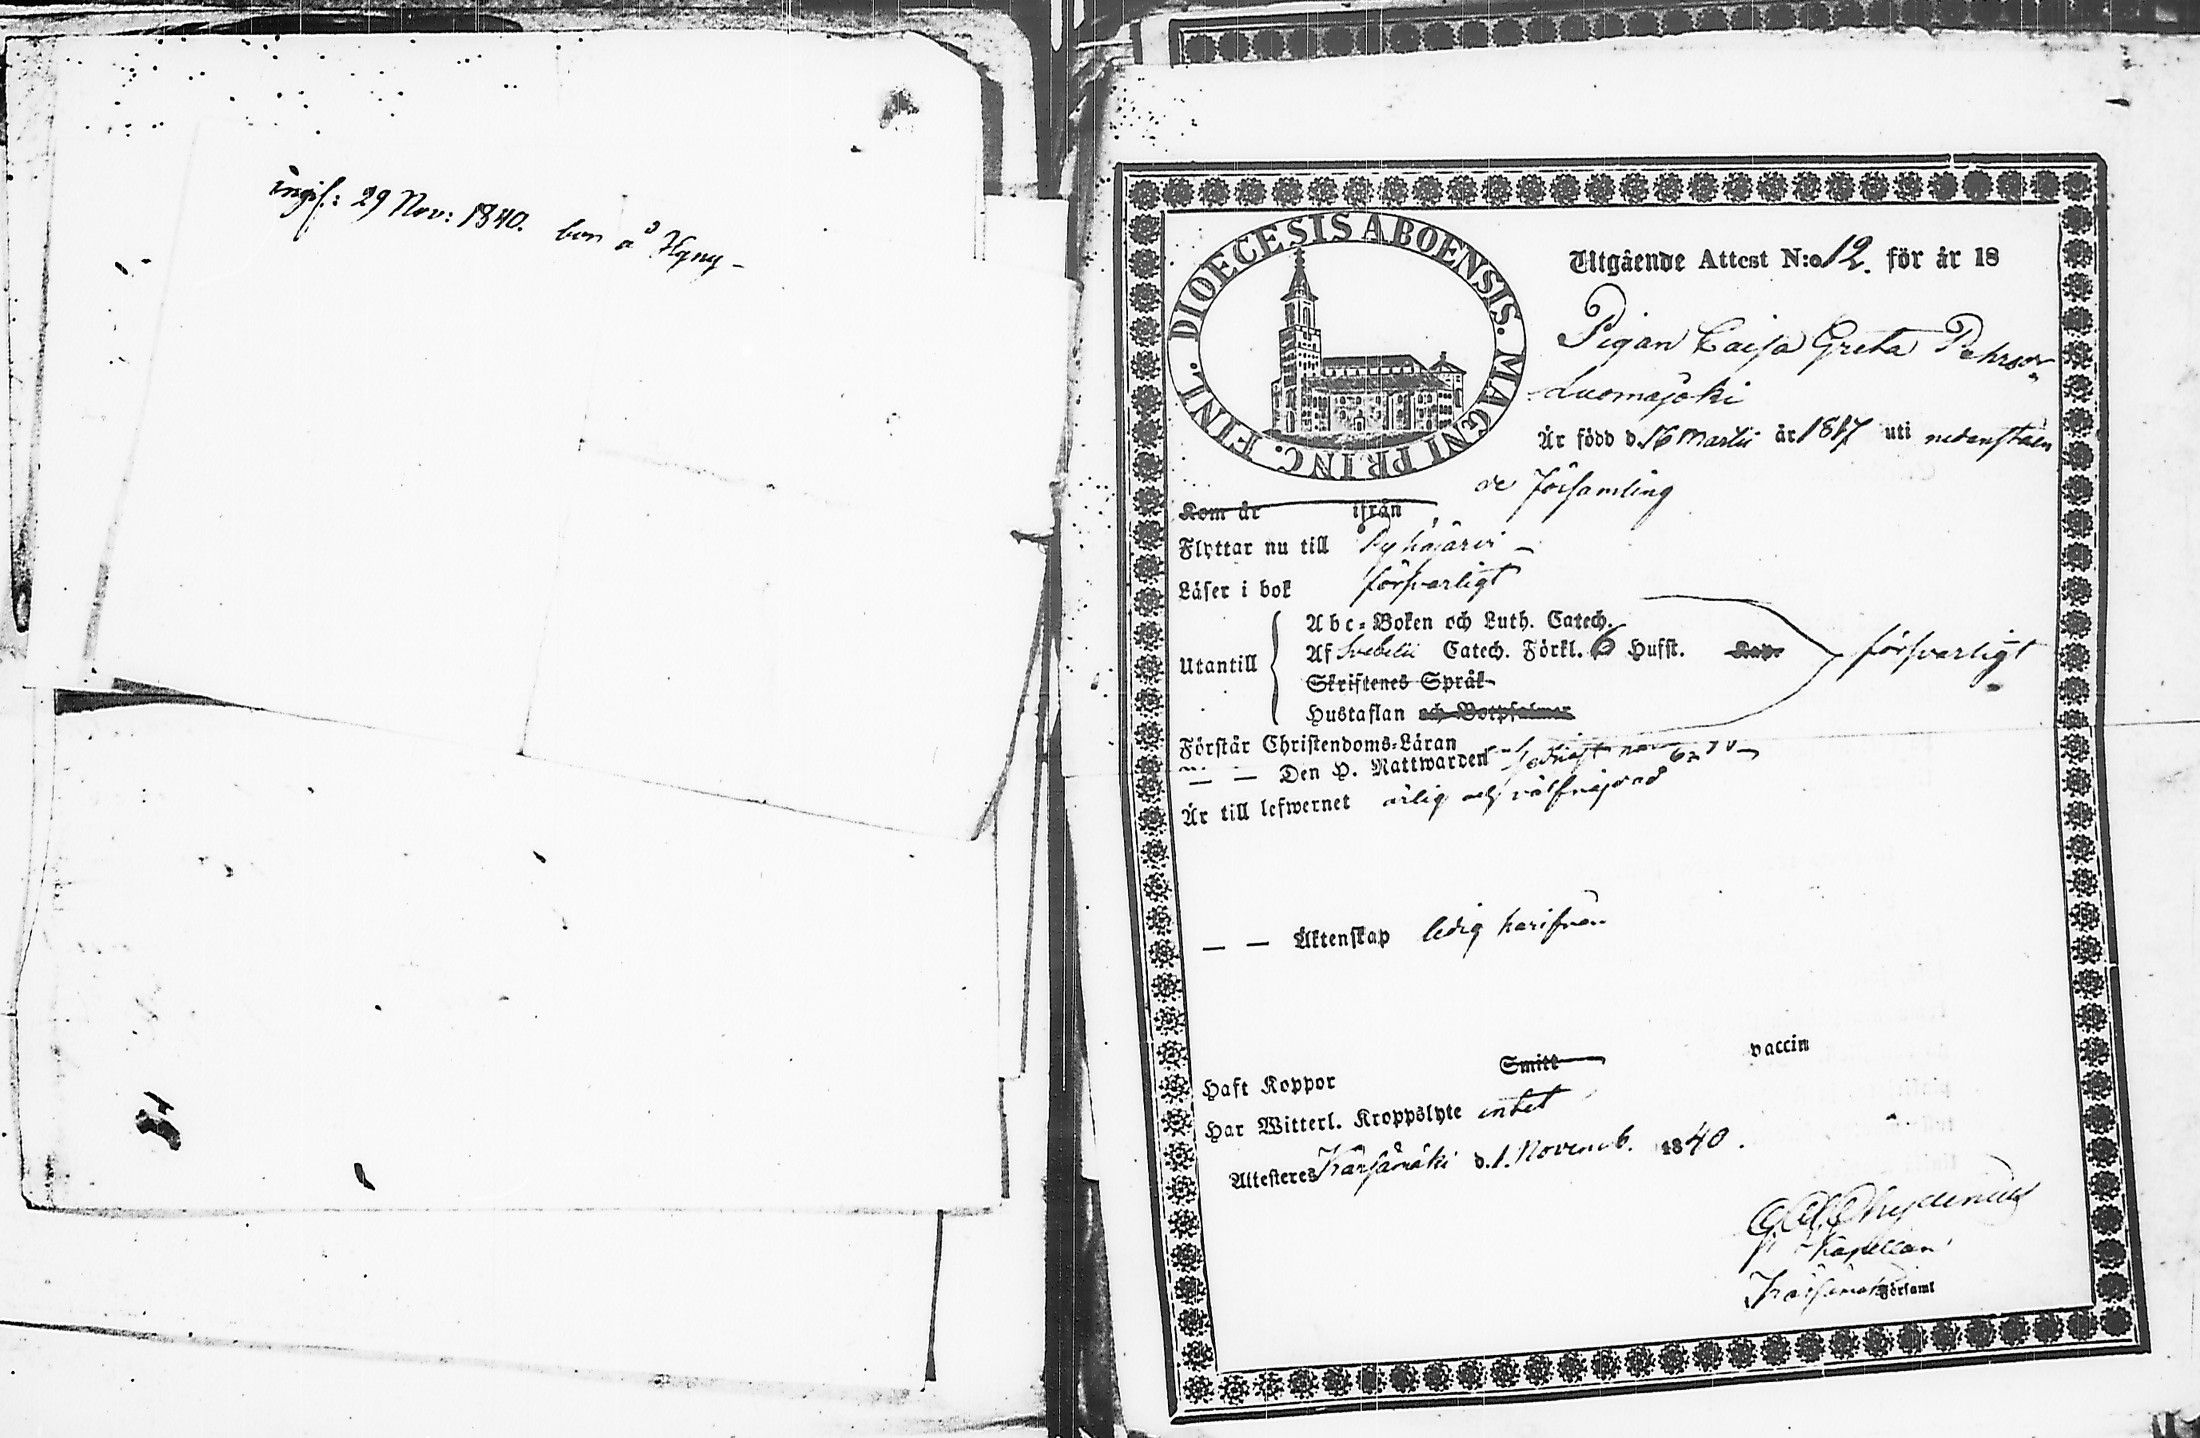 ingif: 29 Nov: 1840. bor å
DIOECESIS ABOENSIS. MAGNI PRINC. FINL.
Utgående Attest N:o 12. för år 18
Pigan Caisa Greta Pehrsdr
Luomajoki
Är född d. 16 Martii år 1817 uti nedanståen
de Församling
Kom år ifrån
Flyttar nu till Pyhäjärvi
Läser i bok försvarligt
Utantill
Abc-Boken och Luth. Catech.
Af Svebelii Catech. Förkl. 6 Hufst. Kap.
Skriftenes Språk
Hustaflan och Botpsalmer
försvarligt
Förstår Christendoms-Läran
— — Den H. Nattwarden
Är till lefwernet ärlig och välfräjdad
— — Äktenskap ledig härifrån
Haft Koppor Smitt vaccin
Har Witterl. Kroppslyte intet
Attesteres Kärsämäki d. 1. Novemb. 1840.
Kapellan
Kärsämäki Församl